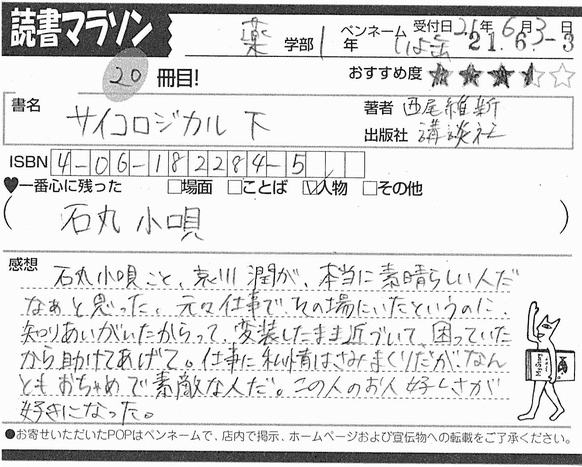 読書マラソン
薬 学部 1 年 ペンネーム 受付日 21年6月3日
21.6.3
20 冊目!
おすすめ度 ★★★☆
書名 サイコロジカル 下
著者 西尾維新
出版社 講談社
ISBN 4-06-182284-5
♥一番心に残った □場面 □ことば ☑人物 □その他
( 石丸 小唄 )
感想
石丸小唄こと、哀川 潤が、本当に素晴らしい人だ
なぁと思った。元々仕事で、その場にいたというのに、
知りあいがいたからって、変装したまま近づいて、困っていた
から助けてあげて。仕事に私情はさみまくりだが、なん
ともおちゃめで素敵な人だ。この人のお人好しさが
好きになった。
●お寄せいただいたPOPはペンネームで、店内で掲示、ホームページおよび宣伝物への転載をご了承ください。